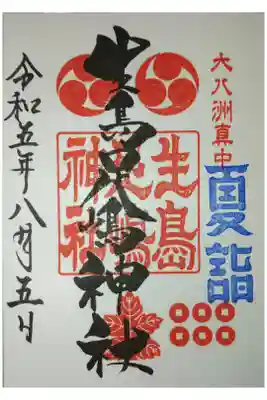 大八洲真中
夏詣
生島足嶋神社
生島足嶋神社
令和五年八月五日